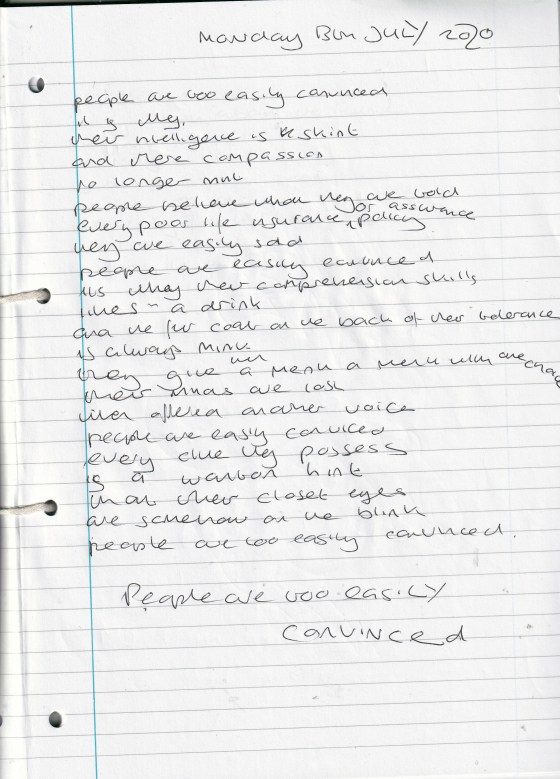 Monday 13th JULY 2020
people are too easily convinced
it is why.
their intelligence is skint
and there compassion
no longer mint
people believe what they are told
every poor life insurance, policy
or assurance
they are easily sold
people are easily convinced
its why their comprehension skills
likes a drink
and the fur coat on the back of their tolerance
is always mink
they give a menu a menu with one choice
their minds are lost
when offered another voice
people are easily convinced
every clue they possess
is a wanton hint
that their closet eyes
are somehow on the blink
people are too easily convinced.
People are too easily
convinced